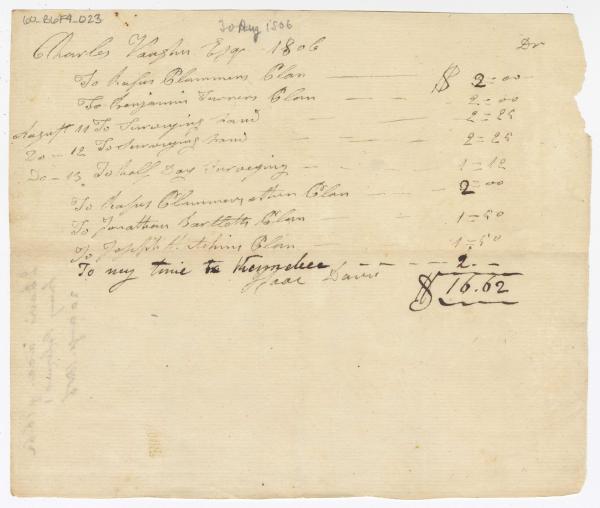 60_B6F4_023
To Aug 1806
Charles Vaughn Esqr 1806 Dr
To Rufus Clammers Plan $ 2=00
To Benjamin Turners Plan 2=00
August 11 To Surveying Land 2=25
Do - 12 To Surveying Land 2=25
Do - 13 To half Day Surveying 1=12
To Rufus Clammers other Plan 2=00
To Jonathan Bartlett Plan 1=50
To Joseph Plan 1=50
To my time to 2.
Isaac Davis $ 16.62